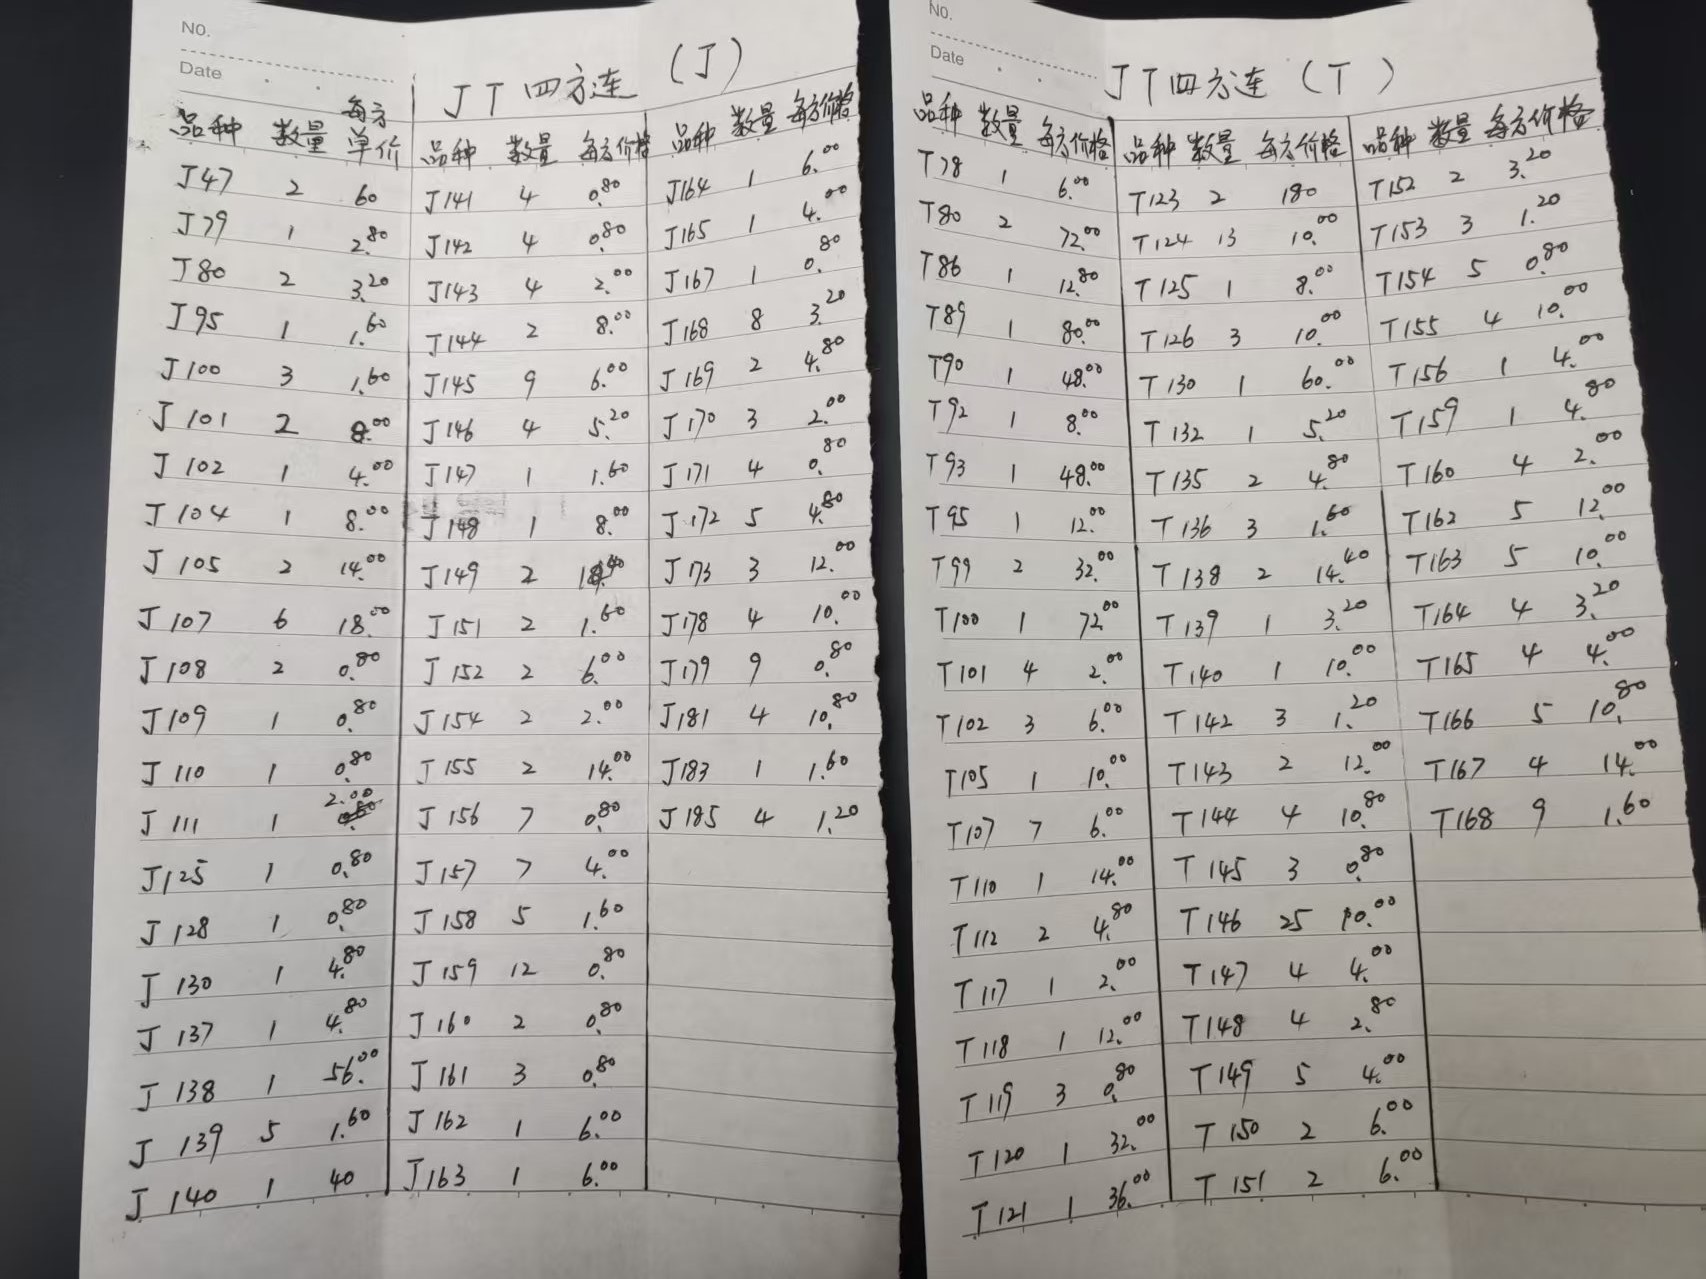 No.
Date
JT四方连 (J)
品种 数量 每方单价
J47 2 60
J79 1 2.80
J80 2 3.20
J95 1 1.60
J100 3 1.60
J101 2 8.00
J102 1 4.00
J104 1 8.00
J105 2 14.00
J107 6 18.00
J108 2 0.80
J109 1 0.80
J110 1 0.80
J111 1 2.00
J125 1 0.80
J128 1 0.80
J130 1 4.80
J137 1 4.80
J138 1 56.00
J139 5 1.60
J140 1 40
品种 数量 每方价格
J141 4 0.80
J142 4 0.80
J143 4 2.00
J144 2 8.00
J145 9 6.00
J146 4 5.20
J147 1 1.60
J148 1 8.00
J149 2
J151 2 1.60
J152 2 6.00
J154 2 2.00
J155 2 14.00
J156 7 0.80
J157 7 4.00
J158 5 1.60
J159 12 0.80
J160 2 0.80
J161 3 0.80
J162 1 6.00
J163 1 6.00
品种 数量 每方价格
J164 1 6.00
J165 1 4.00
J167 1 0.80
J168 8 3.20
J169 2 4.80
J170 3 2.00
J171 4 0.80
J172 5 4.80
J173 3 12.00
J178 4 10.00
J179 9 0.80
J181 4 10.80
J183 1 1.60
J185 4 1.20
No.
Date
JT四方连 (T)
品种 数量 每方价格
T78 1 6.00
T80 2 72.00
T86 1 12.80
T89 1 80.00
T90 1 48.00
T92 1 8.00
T93 1 48.00
T95 1 12.00
T99 2 32.00
T100 1 72.00
T101 4 2.00
T102 3 6.00
T105 1 10.00
T107 7 6.00
T110 1 14.00
T112 2 4.80
T117 1 2.00
T118 1 12.00
T119 3 0.80
T120 1 32.00
T121 1 36.00
品种 数量 每方价格
T123 2 180
T124 13 10.00
T125 1 8.00
T126 3 10.00
T130 1 60.00
T132 1 5.20
T135 2 4.80
T136 3 1.60
T138 2 14.40
T139 1 3.20
T140 1 10.00
T142 3 1.20
T143 2 12.00
T144 4 10.80
T145 3 0.80
T146 25 10.00
T147 4 4.00
T148 4 2.80
T149 5 4.00
T150 2 6.00
T151 2 6.00
品种 数量 每方价格
T152 2 3.20
T153 3 1.20
T154 5 0.80
T155 4 10.00
T156 1 4.00
T159 1 4.80
T160 4 2.00
T162 5 12.00
T163 5 10.00
T164 4 3.20
T165 4 4.00
T166 5 10.80
T167 4 14.00
T168 9 1.60